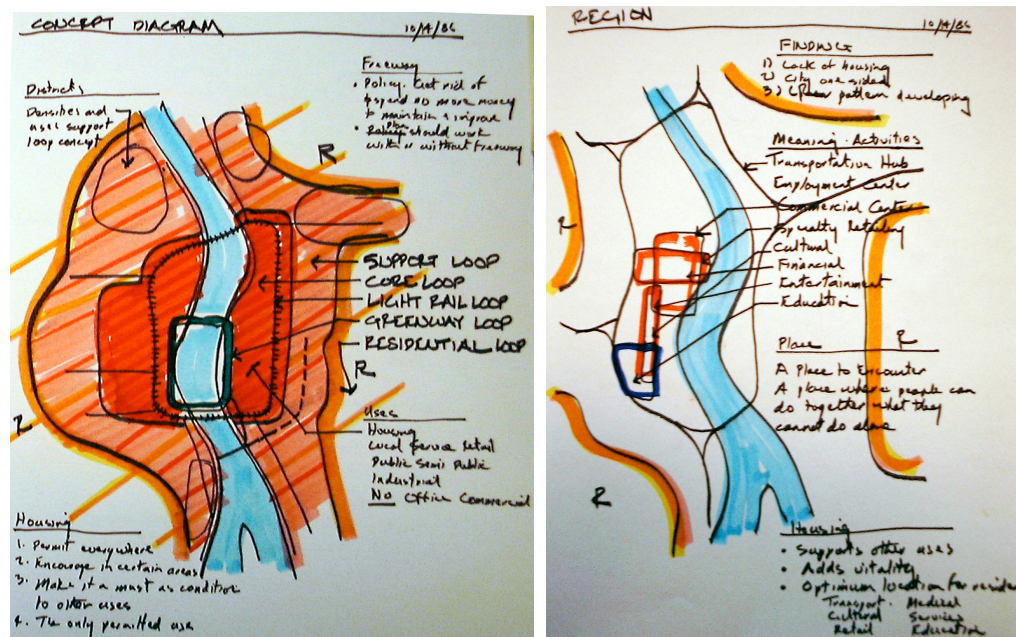 CONCEPT DIAGRAM
10/4/86
Districts
Densities and
uses support
loop concept
Freeway
• Policy. Get rid of
spend no more money
to maintain & improve
• plan should work
with or without freeway
R
SUPPORT LOOP
CORE LOOP
LIGHT RAIL LOOP
GREENWAY LOOP
RESIDENTIAL LOOP
R
R
Uses
Housing
Local Service Retail
Public Semi Public
Industrial
No Office Commercial
Housing
1. Permit everywhere
2. Encourage in certain areas
3. Make it a must as condition
to other uses
4. The only permitted use
REGION
10/4/86
FINDINGS
1) Lack of housing
2) City one sided
3) Clear pattern developing
Meaning - Activities
Transportation Hub
Employment Center
Commercial Center
Specialty Retailing
Cultural
Financial
Entertainment
Education
R
Place
R
A Place to Encounter
A place where people can
do together what they
cannot do alone
R
Housing
• Supports other uses
• Adds vitality
• Optimum location for reside
Transport. Medical
Cultural Services
Retail Education